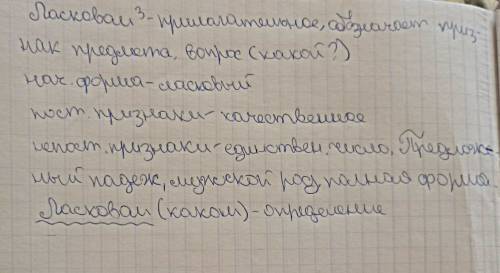 Ласковом³-прилагательное, обозначает приз-
нак предмета, вопрос (какой?)
нач. форма-ласковый
пост. признаки-качественное
непост. признаки-единствен. число, Предлож-
ный падеж, мужской род, полная форма
Ласковом (каком)-определение